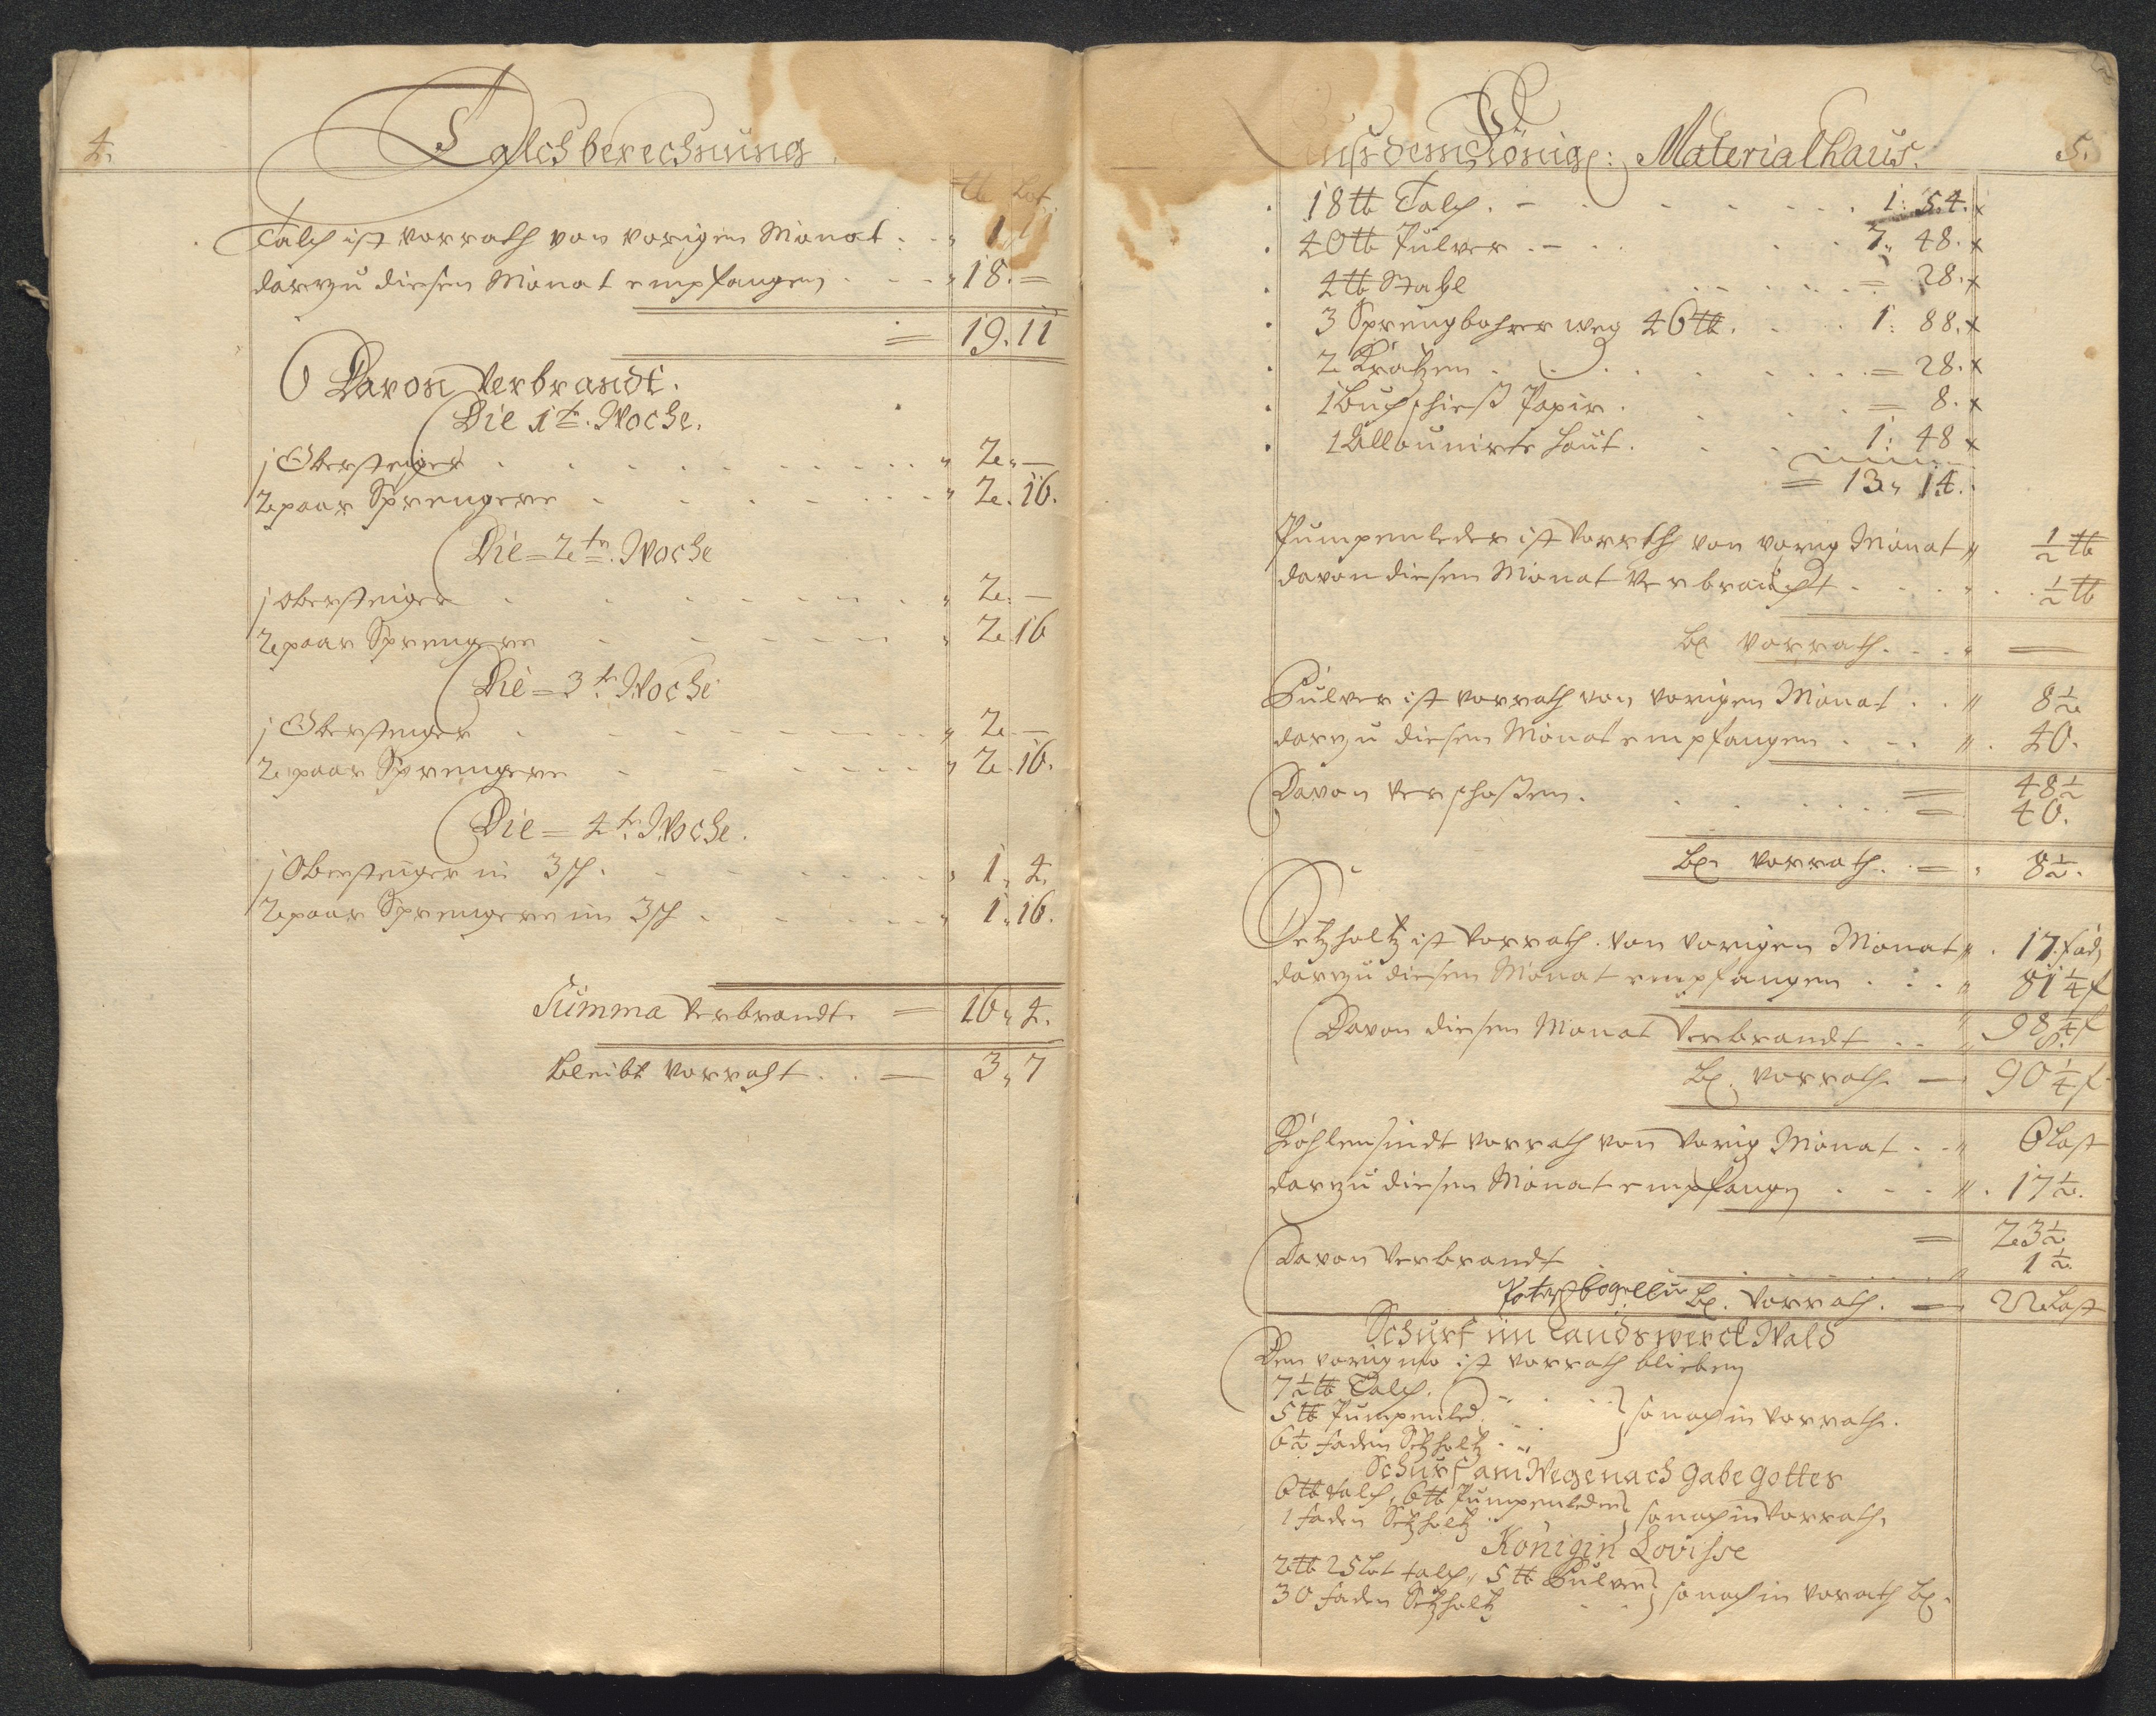 4.
Talchberechnung
tb Lot
Talch ist vorrath von vorigen Monat . . " 1
darzu diesen Monat empfangen . . . " 18. =
= 19. 11
Davon Verbrandt.
Die 1te. Woche.
1 Obersteiger . . . " 2. —
2 paar Sprengere . . . " 2. 16.
Die = 2te. Woche
1 obersteiger . . . " 2. —
2 paar Sprengere . . . " 2. 16
Die = 3te Woche
1 Obersteiger . . . " 2. —
2 paar Sprengere . . . " 2. 16.
Die = 4te Woche.
1 Obersteiger in 3 sch. . . . " 1. 4.
2 paar Sprengere in 3 sch . . . " 1. 16.
Summa Verbrandt. = 16. 4.
bleibt vorraht . . = 3. 7
5.
Auss dem König: Materialhaus.
18 tb Talch . . . 1: 54. x
40 tb Pulver . . . 7. 48. x
4 tb Stahl . . . = 28. x
3 Sprengbohrer weg 46 tb. . . 1: 88. x
2 Kratzen . . . = 28. x
1 Buch schiess Papir . . . = 8. x
1 Allounirte haut . . . 1: 48 x
= 13. 14.
Pumpenleder ist Vorrath von vorig Monat " 1/2 tb
davon diesen Monat Verbraucht . . . 1/2 tb
bl vorrath . . . " =
Pulver ist vorrath von vorigen Monat . . " 8 1/2
darzu diesen Monat empfangen . . . " 40.
= 48 1/2
Davon verschossen . . . = 40.
bl. vorrath. . = . 8 1/2.
Setzholtz ist Vorrath. von vorigen Monat " . 17. fad
darzu diesen Monat empfangen . . . " 81 1/4 f
" 98 1/4 f
Davon diesen Monat Verbrandt . . " 8.
bl. vorrath — 90 1/4 f
Kohlen sindt vorrath von Vorig Monat . . " 6 Last
darzu diesen Monat empfang . . . " . 17 1/2.
= 23 1/2
Davon Verbrandt . . . " 1 1/2
bl. Vorrath. = 22 Last
Schurf im Landswerck Wald
Den vorig mo ist vorrath blieben
7 1/2 tb Talch.
5 tb Pumpenled. . . } so noch in Vorrath.
6 1/2 faden Setzholtz . .
Schurf am Wege nach Gabe Gottes
6 tb talch, 6 tb Pumpenleder
1 faden Setzholtz . } so noch in Vorrath.
Königin Lovisse
2 tb 25 Lot talch, 5 tb Pulver
30 faden Setzholtz . . } so noch in vorath bl.